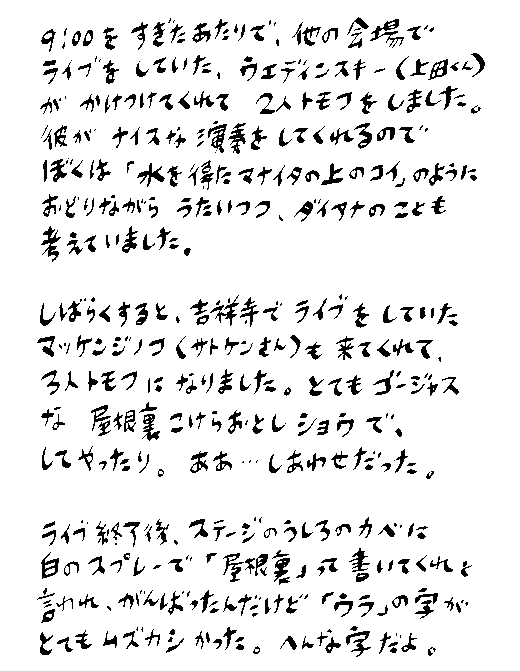 9:00をすぎたあたりで、他の会場で
ライブをしていた、ウエディンスキー(上田くん)
が かけつけてくれて 2人トモフをしました。
彼が ナイスな演奏をしてくれるので
ぼくは「水を得たマナイタの上のコイ」のように
おどりながら うたいつつ、ダイアナのことも
考えていました。
しばらくすると、吉祥寺で ライブをしていた
マッケンジノコ(サトケンさん)も来てくれて、
3人トモフに なりました。とてもゴージャス
な 屋根裏こけらおとし ショウで、
してやったり。 ああ…しあわせだった。
ライブ終了後、ステージのうしろのカベに
白のスプレーで「屋根裏」って書いてくれと
言われ、がんばったんだけど「ウラ」の字が
とてもムズカシかった。 へんな字だよ。